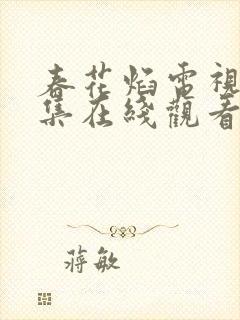 春花焰電視
集在綫觀看
蔣敏